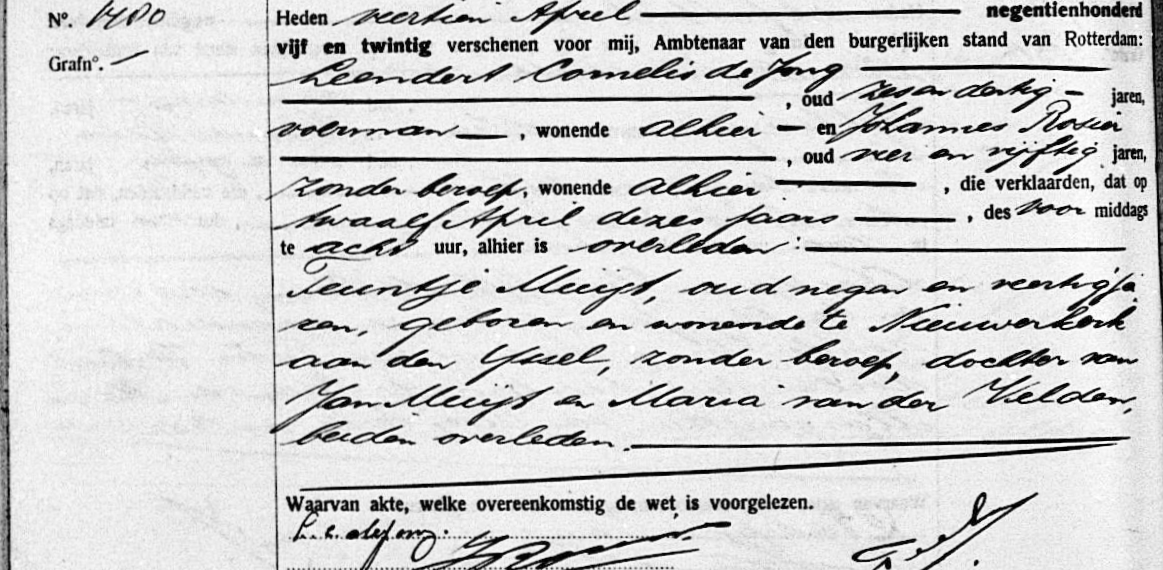 Nº. 1480
Grafnº.
Heden veertien April negentienhonderd
vijf en twintig verschenen voor mij, Ambtenaar van den burgerlijken stand van Rotterdam:
Leendert Cornelis de Jong
, oud zes en dertig jaren,
voerman , wonende alhier en Johannes Rosier
, oud vier en vijftig jaren,
zonder beroep, wonende alhier , die verklaarden, dat op
twaalf April dezes jaars , des voor middags
te acht uur, alhier is overleden :
Teuntje Muijt, oud negen en veertig ja
ren, geboren en wonende te Nieuwerkerk
aan den IJssel, zonder beroep, dochter van
Jan Muijt en Maria van der Velden,
beiden overleden.
Waarvan akte, welke overeenkomstig de wet is voorgelezen.
L. C. de Jong.